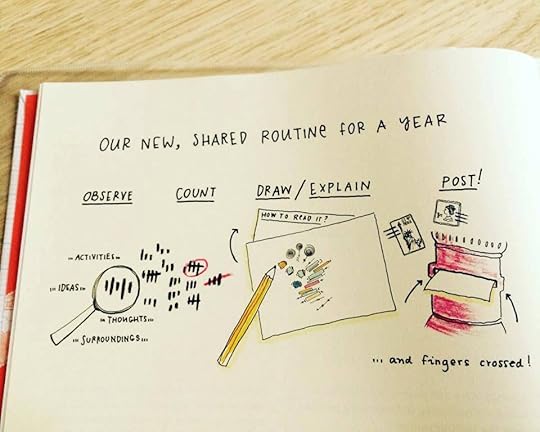 OUR NEW, SHARED ROUTINE FOR A YEAR
OBSERVE
COUNT
DRAW / EXPLAIN
POST!
HOW TO READ IT?
... ACTIVITIES...
... IDEAS...
... THOUGHTS...
... SURROUNDINGS...
... and fingers crossed!